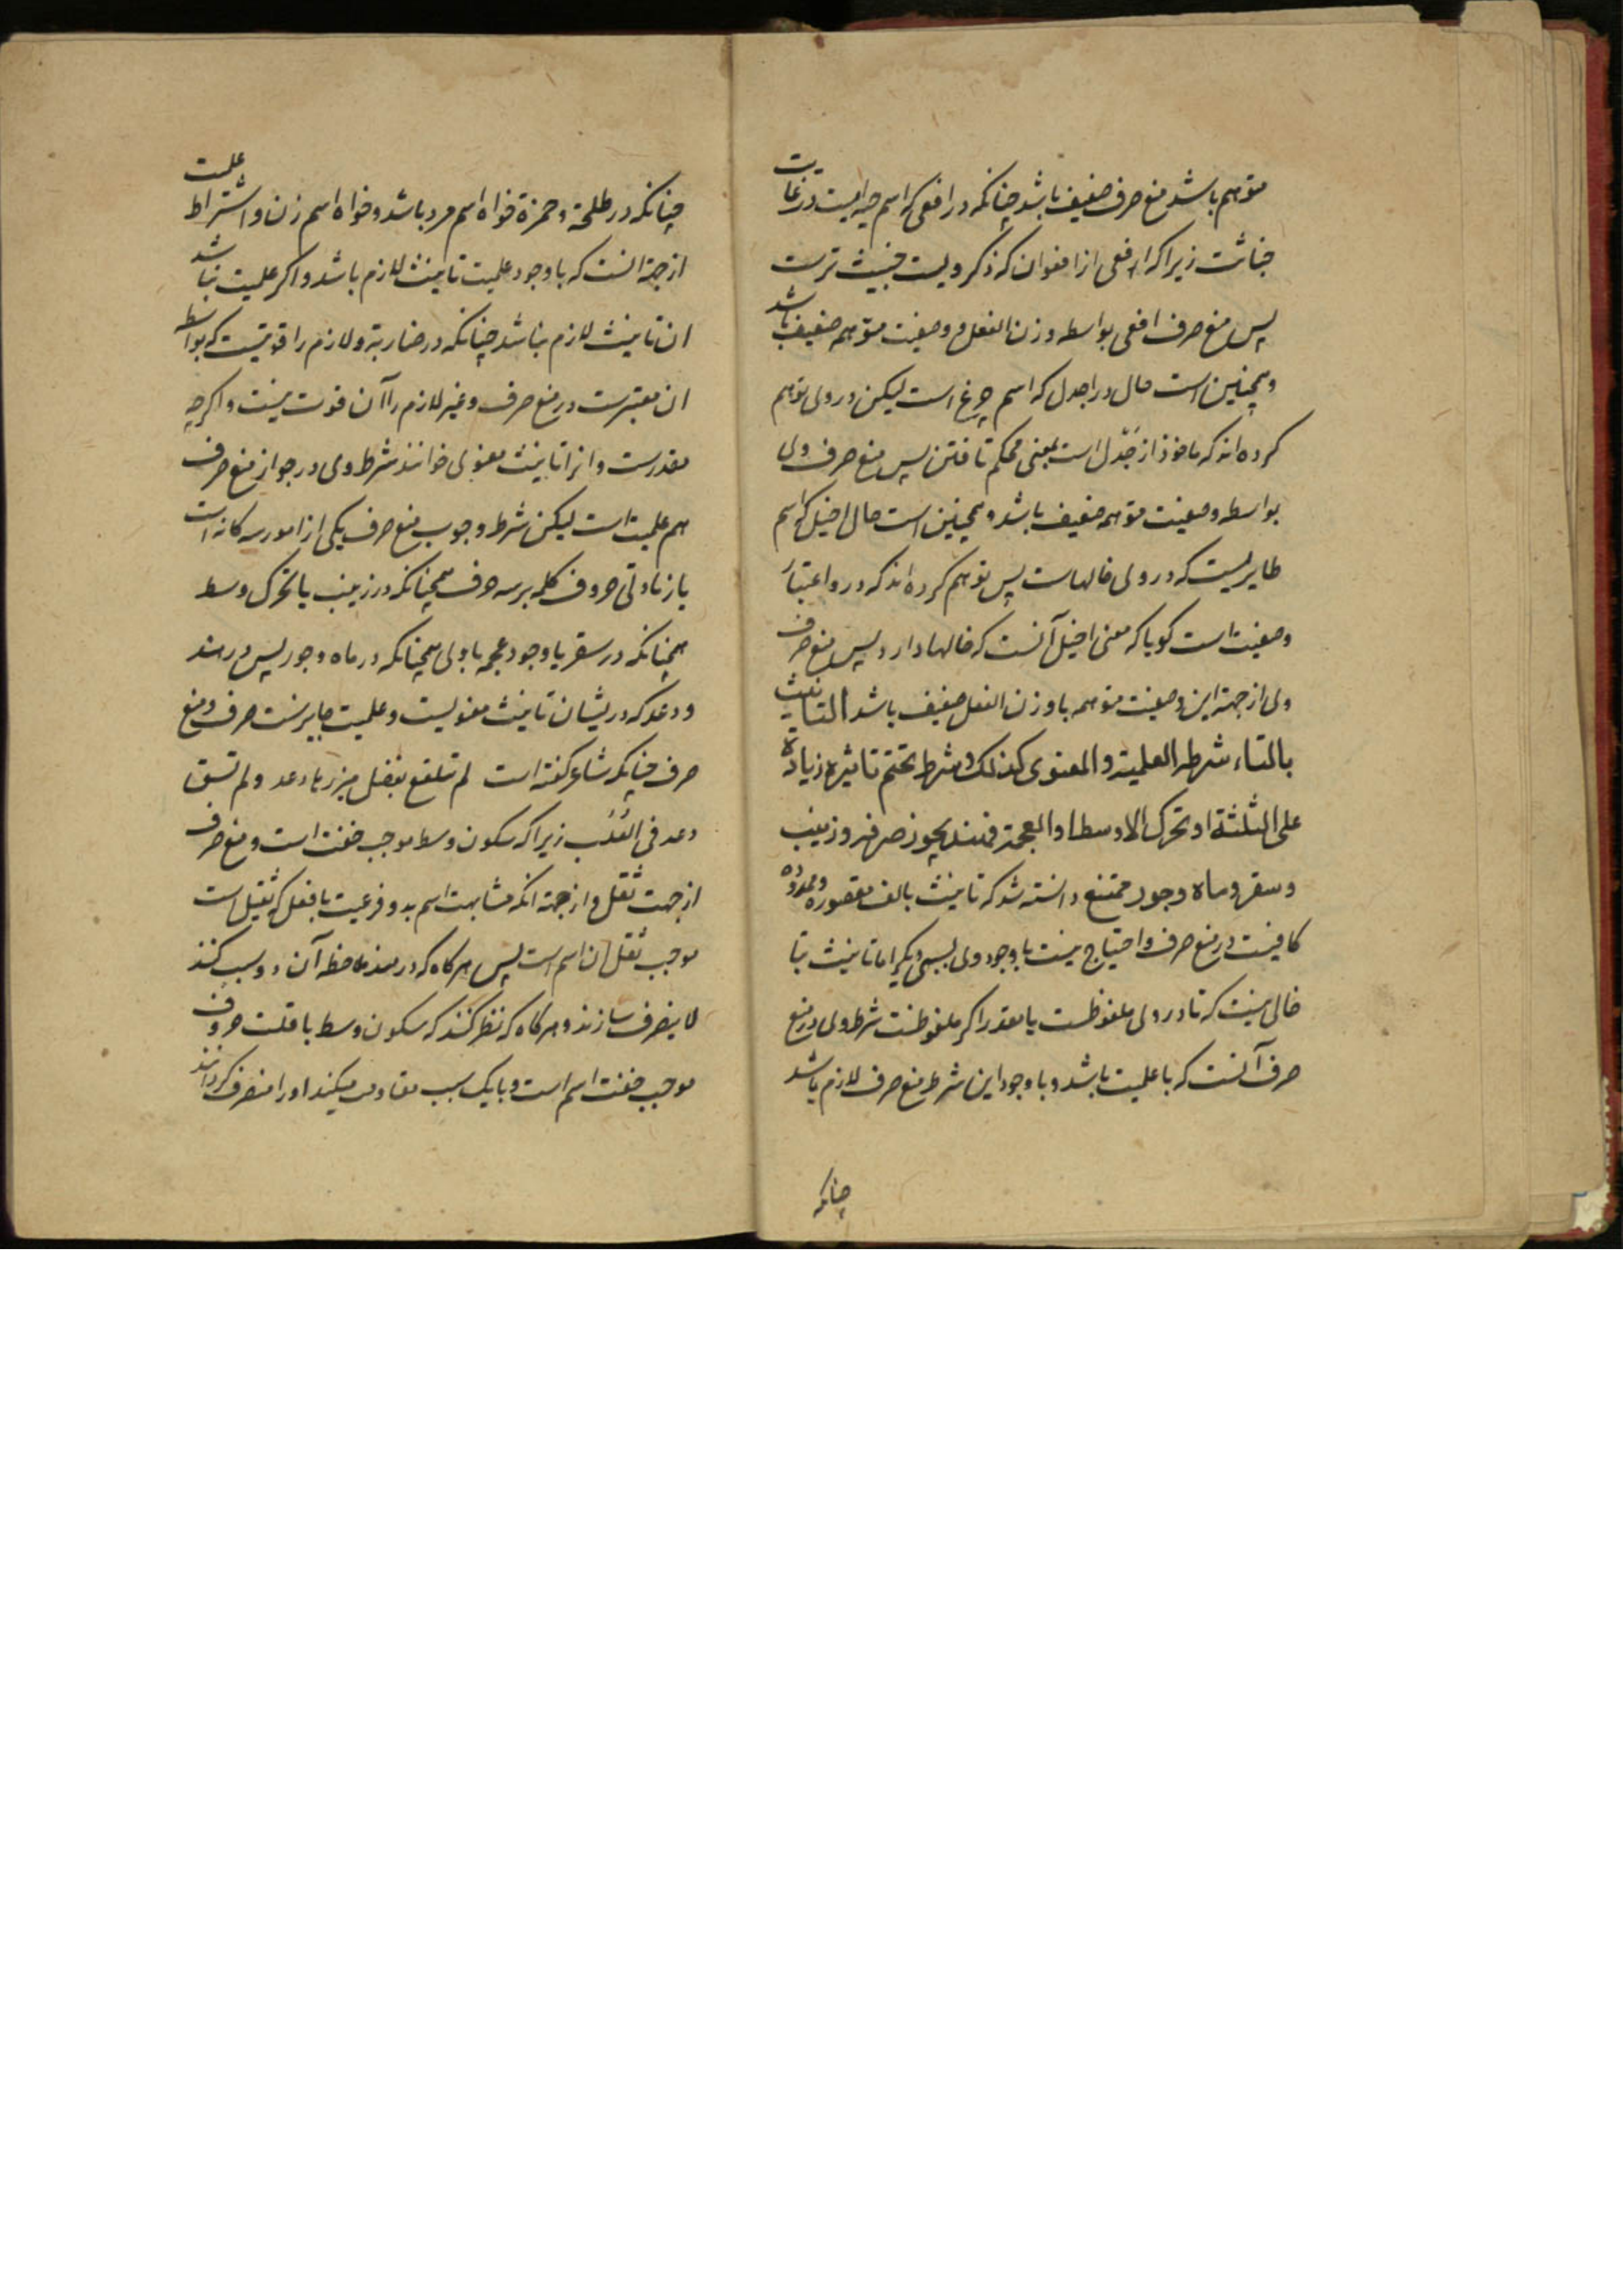 متوهم باشد منع صرف ضعیف باشد چنانکه در افعی که اسم حیه ایست در غایت
خباثت زیرا که افعی از افعوان که ذکر ویست خبیث ترست
پس منع صرف افعی بواسطه وزن الفعل و وصفیت متوهمه ضعیف باشد
و همچنین است حال در اجدل که اسم چرغ است لیکن در وی توهم
کرده اند که ماخوذ از جَدْل است بمعنی محکم تافتن پس منع صرف وی
بواسطه وصفیت متوهمه ضعیف باشد و همچنین است حال اخیل که اسم
طایریست که در وی خالهاست پس توهم کرده اند که در و اعتبار
وصفیت است کویا که معنی اخیل آنست که خالها دارد پس منع صرف
وی از جهة این وصفیت متوهمه با وزن الفعل ضعیف باشد التانیث
بالتاء شرطه العلمیة و المعنوی کذلک و شرط تحتم تاثیره زیادة
علی الثلثة او تحرک الاوسط او العجمة فهند یجوز صرفه و زینب
و سقر و ماه و جور ممتنع دانسته شد که تانیث بالف مقصوره و ممدوده
کافیست در منع صرف و احتیاج نیست با وجود وی بسببی دیکر اما تانیث بتا
خالی نیست که تا در وی ملفوظست یا مقدر اکر ملفوظست شرط وی در منع
صرف آنست که با علمیت باشد و با وجود این شرط منع صرف لازم باشد
چنانکه
چنانکه در طلحة و حمزة خواه اسم مرد باشد و خواه اسم زن و اشتراط علمیت
از جهة آنست که با وجود علمیت تانیث لازم باشد و اکر علمیت نباشد
ان تانیث لازم نباشد چنانکه در ضاربة و لازم را قوتیست که بواسطه
ان معتبرست در منع صرف و غیر لازم را آن قوت نیست و اکرچه
مقدرست و انرا تانیث معنوی خوانند شرط وی در جواز منع صرف
هم علمیت است لیکن شرط وجوب منع صرف یکی از امور سه کانه است
یا زیادتی حروف کلمه بر سه حرف همچنانکه در زینب یا تحرک وسط
همچنانکه در سقر یا وجود عجمه با وی همچنانکه در ماه و جور پس در هند
و دعد که دریشان تانیث معنویست و علمیت جایزست صرف و منع
صرف چنانکه شاعر کفته است لم تتلفع بفضل میزرها دعد ولم تسق
دعد فی العُلَب زیرا که سکون وسط موجب خفت است و منع صرف
از جهت ثقل و از جهة انکه مشابهت اسم بدو فرعیت با فعل که ثقیل است
موجب ثقل ان اسم است پس هرکاه که در هند ملاحظه آن دو سبب کنند
لا ینصرف سازند و هرکاه که نظر کنند که سکون وسط با قلت حروف
موجب خفت اسم است و با یک سبب مقاومت میکند او را منصرف کردانند